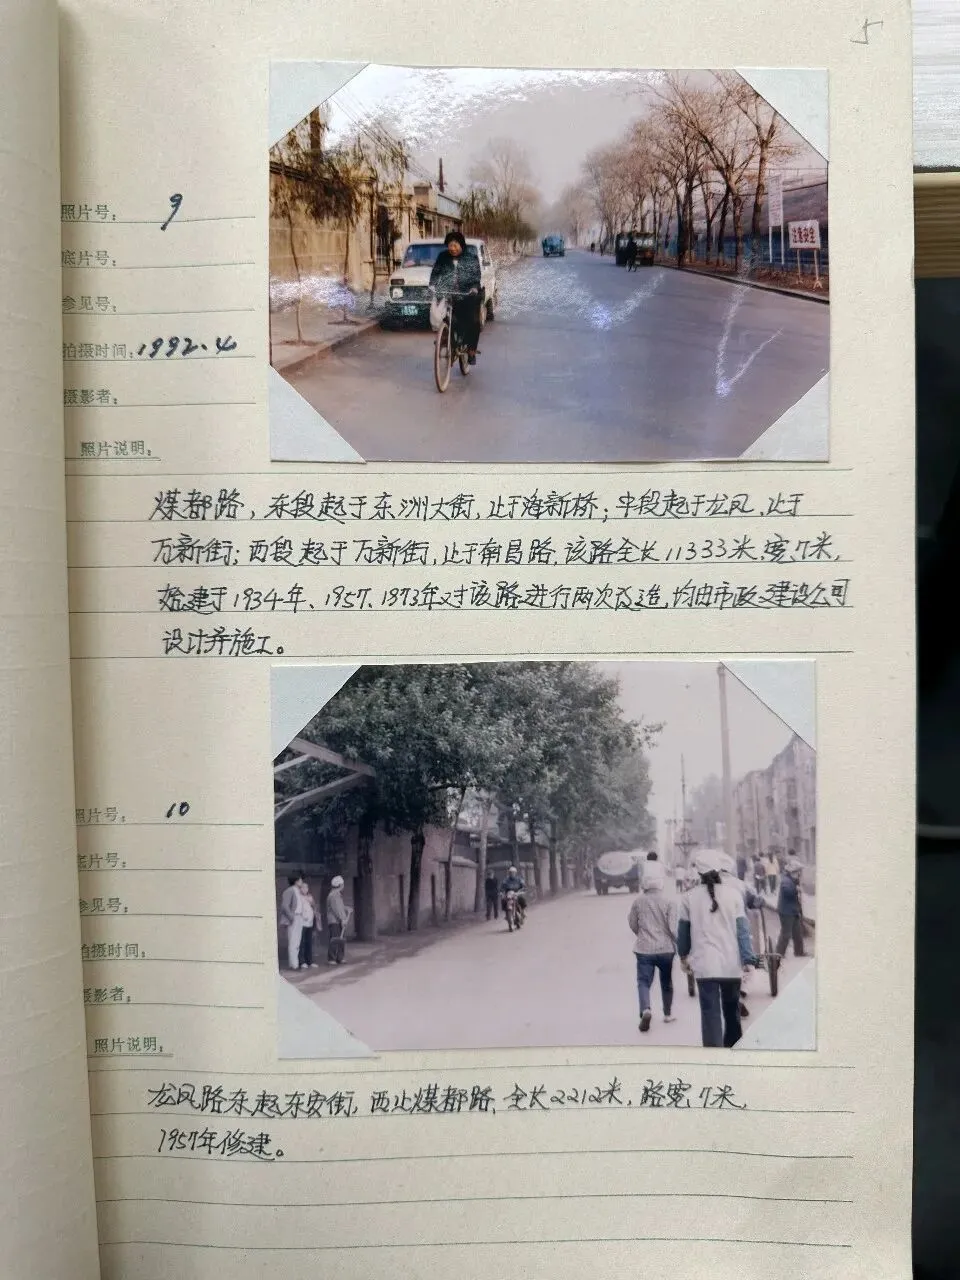 5
注意安全
照片号: 9
底片号:
参见号:
拍摄时间: 1992.4
摄影者:
照片说明:
煤都路，东段起于东洲大街，止于海新桥；中段起于龙凤，止于
万新街；西段起于万新街，止于南昌路，该路全长11333米，宽7米，
始建于1934年、1957、1973年对该路进行两次改造，均由市政建设公司
设计并施工。
照片号: 10
底片号:
参见号:
拍摄时间:
摄影者:
照片说明:
龙凤路东起东安街，西止煤都路，全长2212米，路宽7米，
1957年修建。